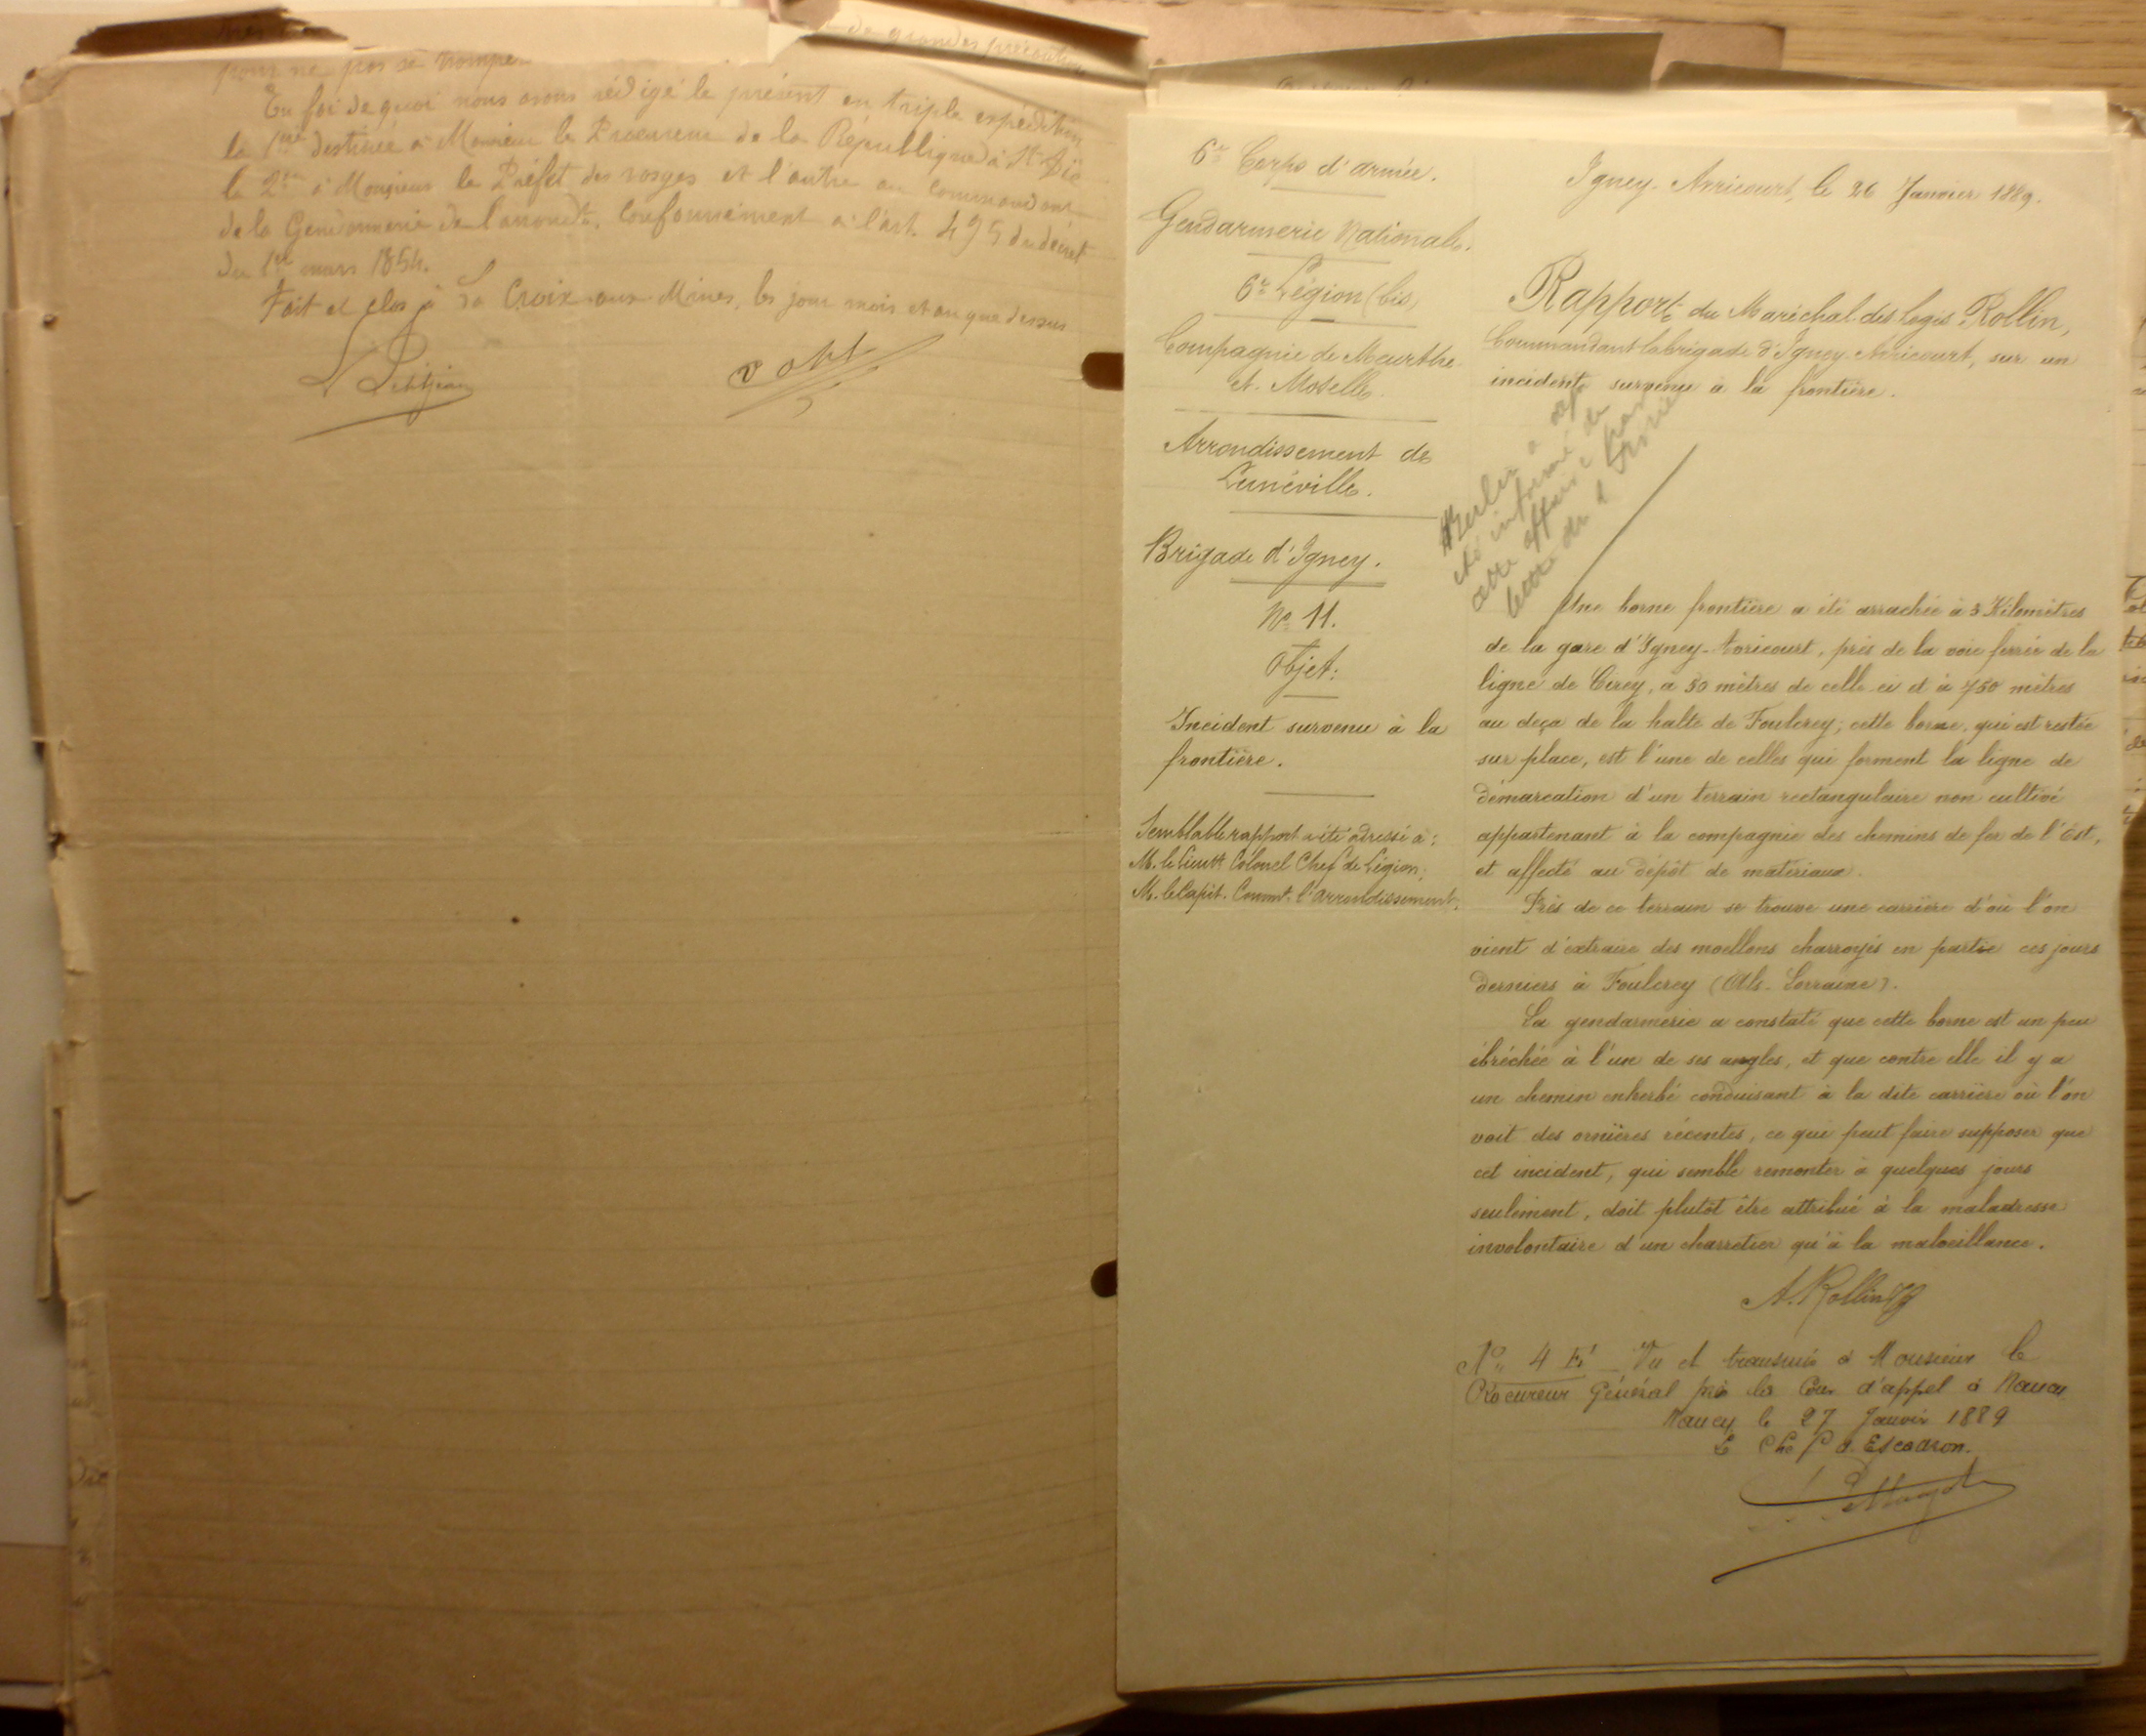 de grandes précautions
pour ne pas se tromper
En foi de quoi nous avons rédigé le présent en triple expédition
la 1ère destinée à Monsieur le Procureur de la République à St Dié
la 2me à Monsieur le Préfet des vosges et l'autre au Commandant
de la Gendarmerie de l'arrondt. Conformément à l'art. 495 du décret
du 1er mars 1854.
Fait et clos à La Croix-aux-Mines, les jour mois et an que dessus
Petitjean
6e Corps d'armée.
Gendarmerie Nationale.
6e Légion (bis)
Compagnie de Meurthe-
et-Moselle.
Arrondissement de
Lunéville.
Brigade d'Igney.
No 11.
Objet:
Incident survenu à la
frontière.
Semblable rapport a été adressé à:
M. le Lieutt Colonel Chef de Légion;
M. le Capit. Commt. l'arrondissement;
Igney-Avricourt, le 26 Janvier 1889.
Rapport du Maréchal-des-logis Rollin,
Commandant la brigade d'Igney-Avricourt, sur un
incident survenu à la frontière.
a déjà
été informé de
cette affaire par
lettre du
Une borne frontière a été arrachée à 3 Kilomètres
de la gare d'Igney-Avricourt, près de la voie ferrée de la
ligne de Cirey, à 50 mètres de celle-ci et à 750 mètres
au deça de la halte de Foulcrey; cette borne, qui est restée
sur place, est l'une de celles qui forment la ligne de
démarcation d'un terrain rectangulaire non cultivé
appartenant à la compagnie des chemins de fer de l'Est,
et affecté au dépôt de matériaux.
Près de ce terrain se trouve une carrière d'où l'on
vient d'extraire des moellons charroyés en partie ces jours
derniers à Foulcrey (Als-Lorraine).
La gendarmerie a constaté que cette borne est un peu
ébréchée à l'un de ses angles, et que contre elle il y a
un chemin enherbé conduisant à la dite carrière où l'on
voit des ornières récentes, ce qui peut faire supposer que
cet incident, qui semble remonter à quelques jours
seulement, doit plutôt être attribué à la maladresse
involontaire d'un charretier qu'à la malveillance.
A. Rollin
No 4 Vu et transmis à Monsieur le
Procureur Général près la Cour d'appel à Nancy
Nancy le 27 Janvier 1889
Le Chef d'Escadron.